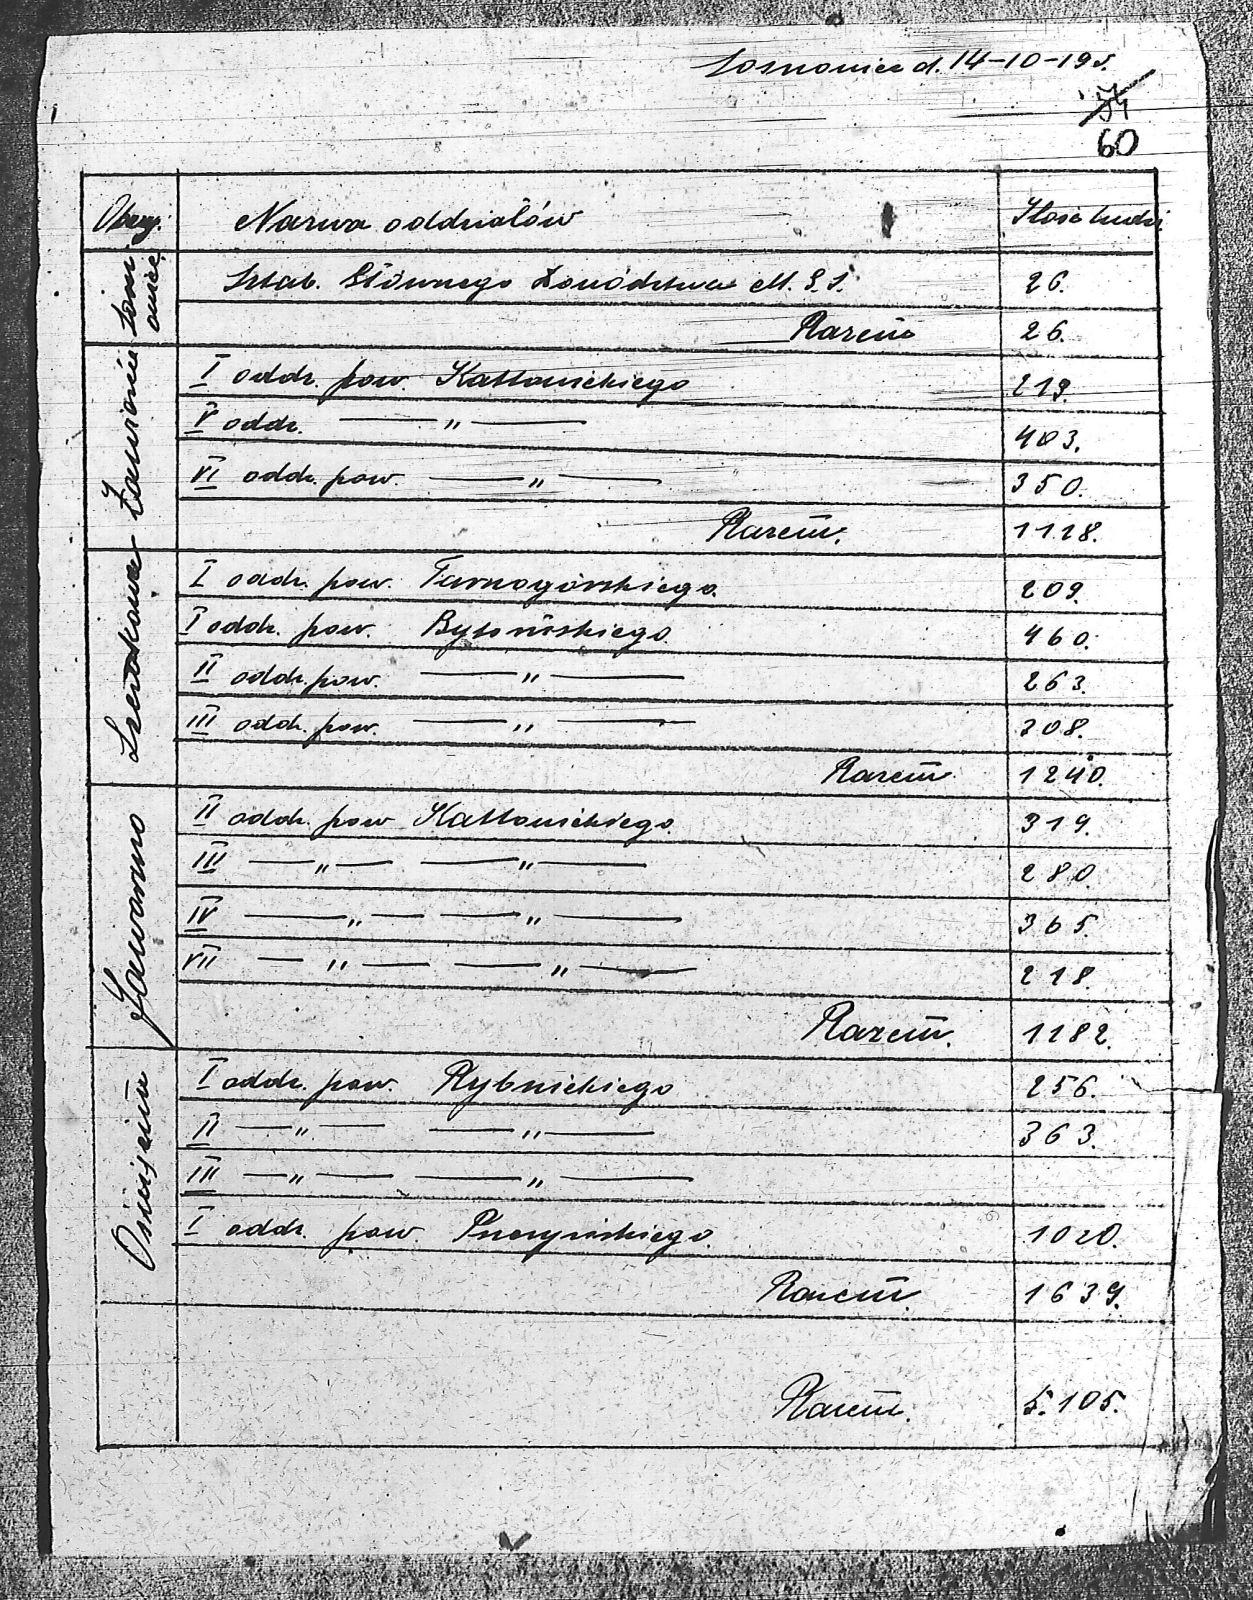 Sosnowice d. 14-10-19 r.
54
60
Obozy. Nazwa oddziałów Ilość ludzi
Sosnowice
Sztab. Głównego Dowództwa M. G. S. 26.
Razem 26.
Zawiercie
I oddz. pow. Kattowickiego 219.
V oddz. — „ — 403.
VI oddz. pow. — „ — 350.
Razem. 1118.
Szczakowa
I oddz. pow. Tarnogórskiego. 209.
I oddz. pow. Bytomskiego. 460.
II oddz. pow. — „ — 263.
III oddz. pow. — „ — 308.
Razem. 1240.
Jaworzno
II oddz. pow Kattowickiego. 319.
III — „ — — „ — 280.
IV — „ — — „ — 365.
VII — „ — — „ — 218.
Razem. 1182.
Oświęcim
I oddz. pow. Rybnickiego 256.
II — „ — — „ — 363.
III — „ — — „ —
I oddz. pow. Pszczyńskiego. 1020.
Razem. 1639.
Razem. 5.105.